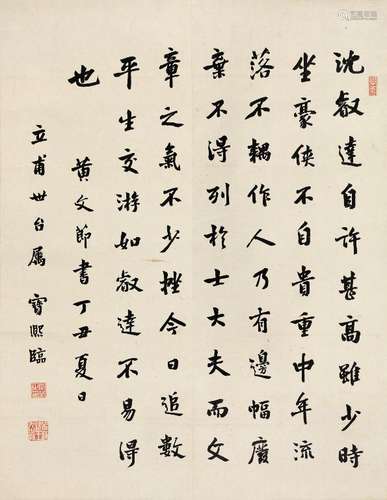 沈叡達自許甚高雖少時
坐豪俠不自貴重中年流
落不耦作人乃有邊幅廢
棄不得列於士大夫而文
章之氣不少挫今日追數
平生交游如叡達不易得
也
黄文節書丁丑夏日
立甫世台属 寶熙臨